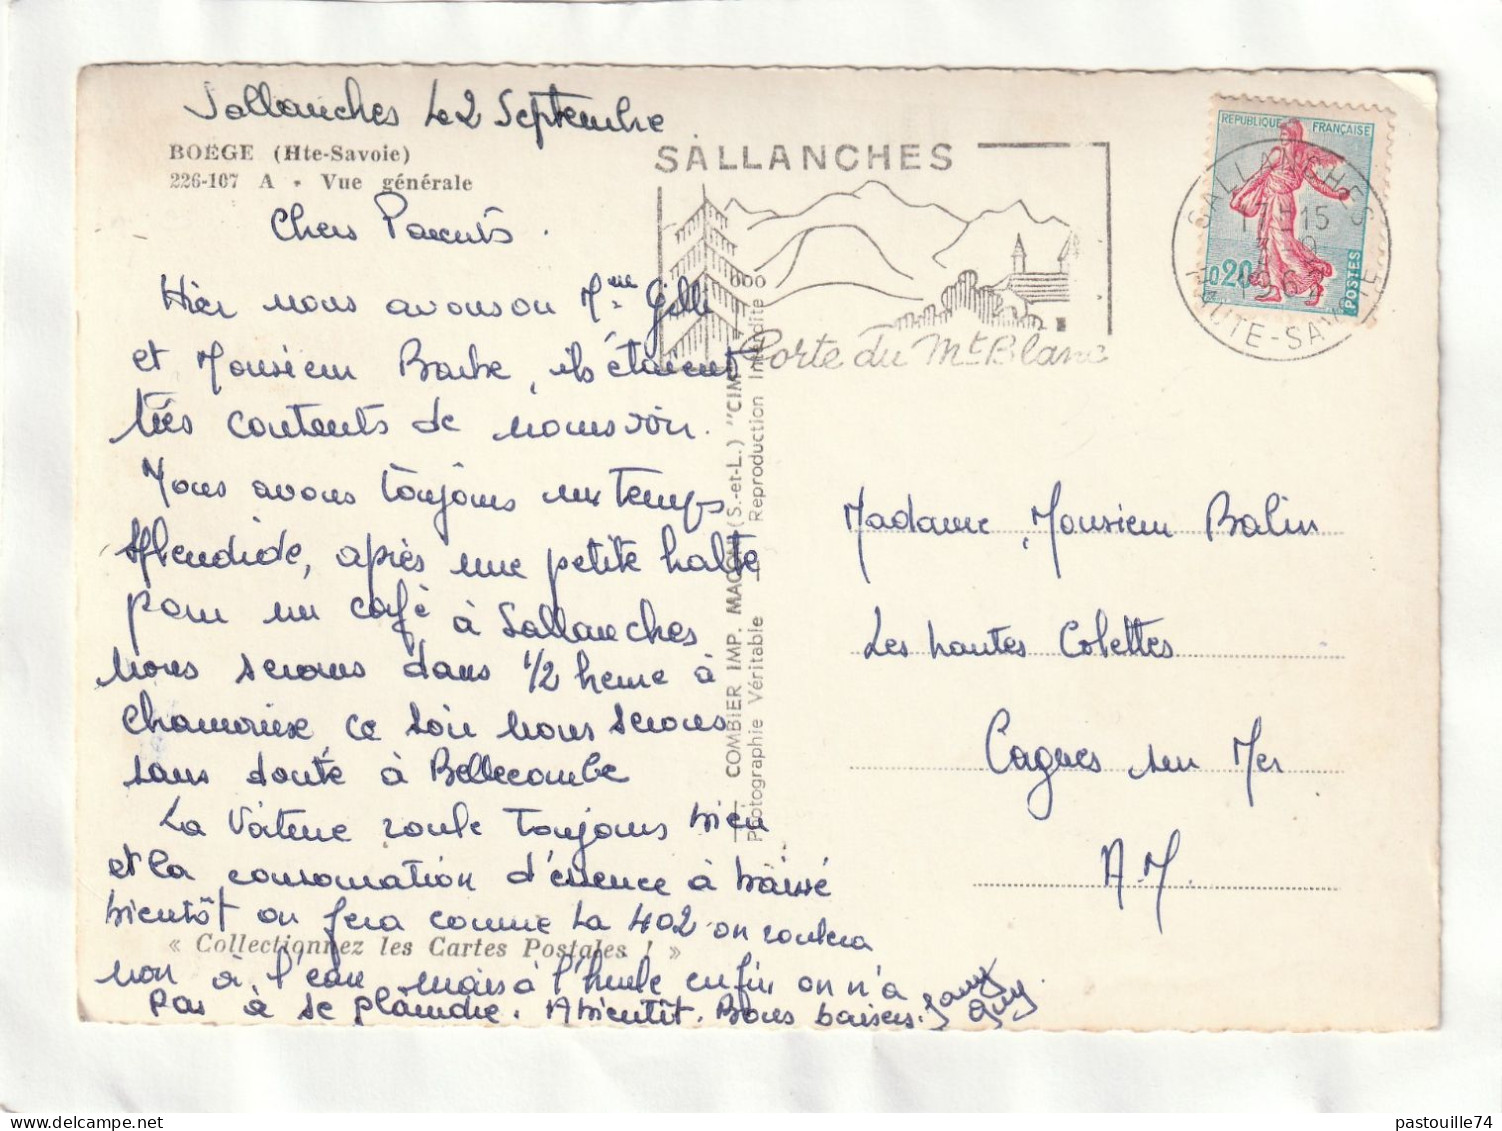 Sallanches Le 2 Septembre
BOËGE (Hte-Savoie)
226-107 A • Vue générale
Chers Parents.
Hier nous avons vu Mme Gilli
et Monsieur Barbe, ils étaient
très contents de nous voir.
Nous avons toujours un temps
splendide, après une petite halte
pour un café à Sallanches
nous serons dans 1/2 heure à
Chamonix ce soir nous serons
sans doute à Bellecombe
La voiture roule toujours bien
et la consommation d'essence à baissé
bientôt on fera comme la 402 on roulera
« Collectionnez les Cartes Postales ! »
non à l'eau mais à l'huile enfin on n'a
pas à se plaindre. A bientôt. Bons baisers.
Guy
SALLANCHES
Porte du Mt Blanc
COMBIER IMP. MACON (S.-et-L.) "CIM"
Photographie Véritable — Reproduction Interdite
REPUBLIQUE FRANÇAISE
0,20
POSTES
SALLANCHES
17H15
3-9
HAUTE-SAVOIE
Madame, Monsieur Balin
Les hautes Colettes
Cagnes sur Mer
A.M.
pastouille74